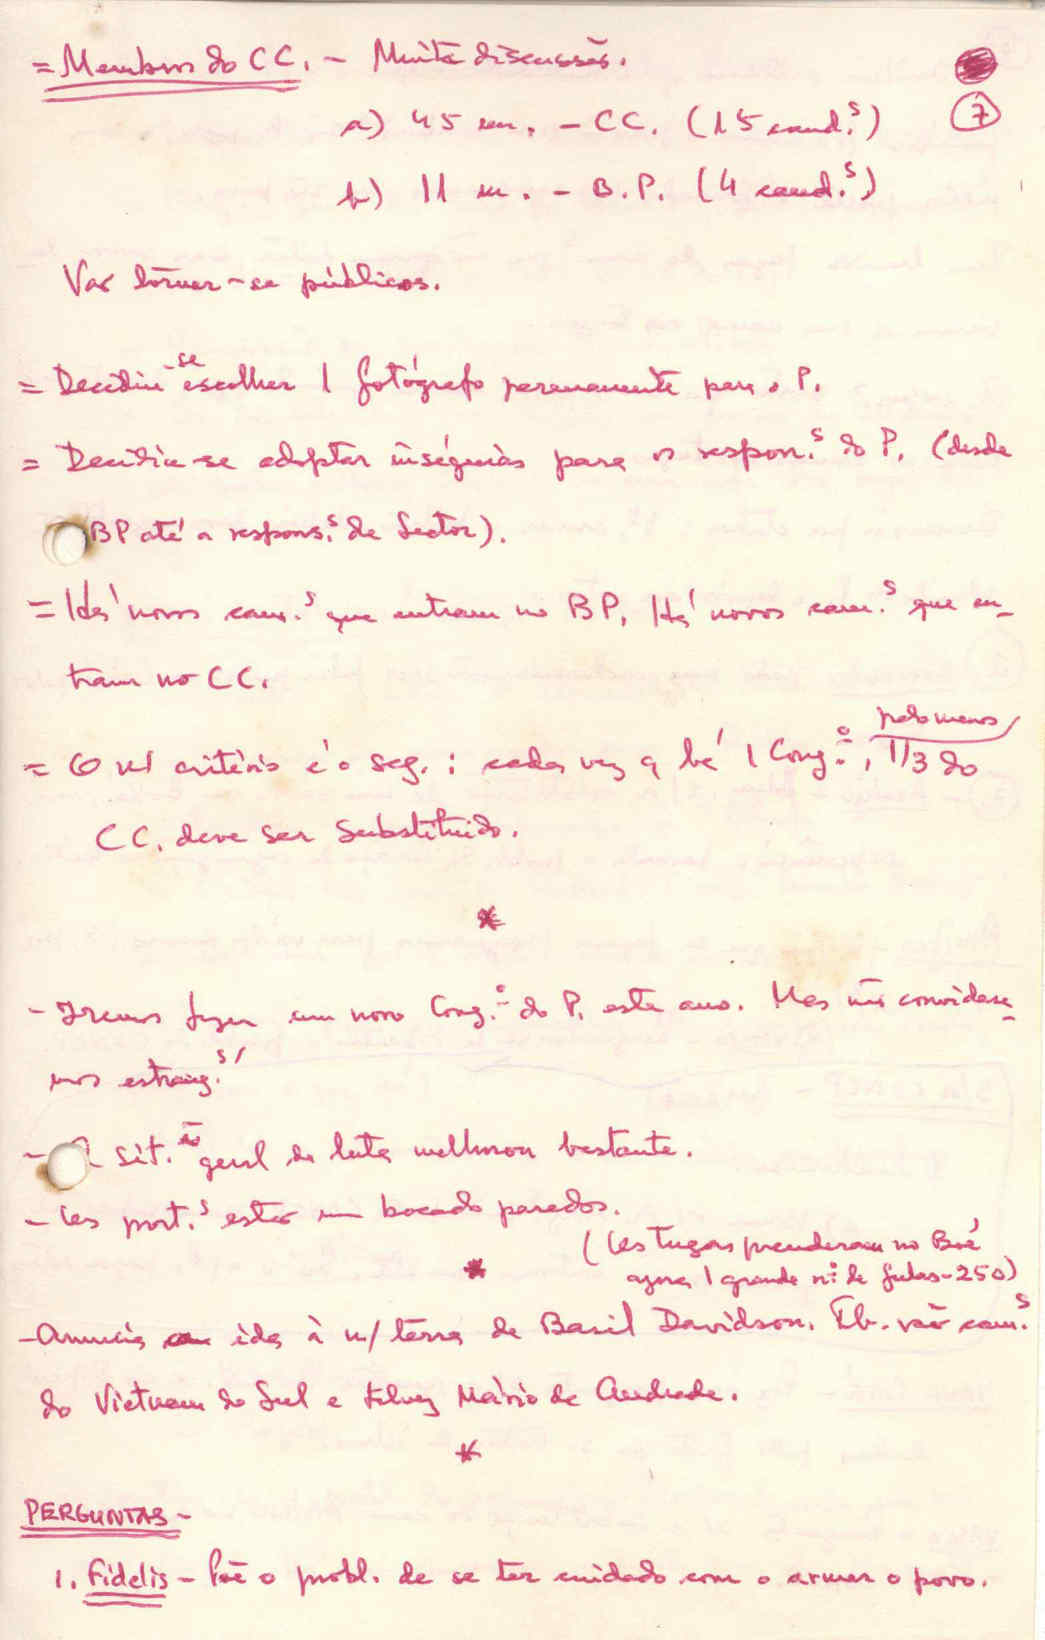 = Membros do CC. - Muita discussão.
7
a) 45 m. - CC. (15 cand.s)
b) 11 m. - B.P. (4 cand.s)
Vai tornar-se públicos.
= Decidiu-se escolher 1 fotógrafo permanente para o P.
= Decidiu-se adoptar insígnias para os respon.s do P. (desde
BP até a respons.s de Sector).
= Há novos cam.s que entram no BP. Há novos cam.s que en-
tram no CC.
= O n/ critério é o seg.: cada vez q há 1 Cong.º, pelo menos 1/3 do
CC. deve ser substituído.
*
- Iremos fazer um novo Cong.º do P. este ano. Mas não convidare-
mos estrang.s/
- A sit.ão geral da luta melhorou bastante.
- Os port.s estão um bocado parados.
(Os Tugas prenderam no Boé
agora 1 grande nº de fulas - 250)
*
- Anuncia ida à n/ terra de Basil Davidson. Tb. vão cam.s
do Vietnam do Sul e talvez Mário de Andrade.
*
PERGUNTAS -
1. Fidelis - Põe o probl. de se ter cuidado com o armar o povo.